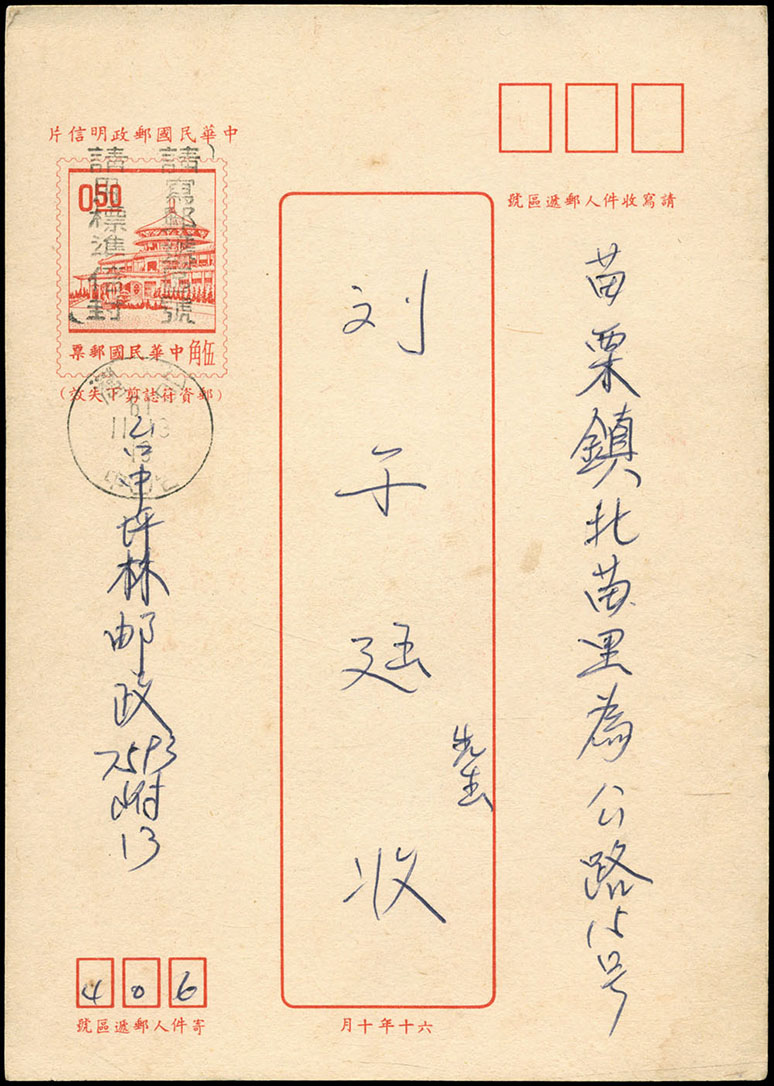 中華民國郵政明信片
0.50
中華民國郵票
伍角
請寫郵遞區號
請用標準信封
(郵資符誌剪下失效)
臺
61
11 13
請寫收件人郵遞區號
苗栗鎮北苗里為公路15号
刘
先生
收
台中坪林邮政
7593
附
13
406
寄件人郵遞區號
六十年十月